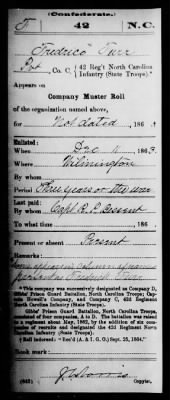 (Confederate.)
T 42 N.C.
Fredrico Turr
Pvt, Co. C, 42 Reg't North Carolina Infantry (State Troops).*
Appears on
Company Muster Roll
of the organization named above,
for Not dated, 186
Enlisted:
When Dec 11, 1863
Where Wilmington
By whom
Period Three years or the war
Last paid:
By whom Capt. R. P.
To what time , 186
Present or absent Present
Remarks:
*This company was successively designated as Company D,
Gibbs' Prison Guard Battalion, North Carolina Troops; Captain
Howell's Company, and Company C, 42d Regiment
North Carolina Infantry (State Troops).
Gibbs' Prison Guard Battalion, North Carolina Troops,
consisted of four companies, A to D. The battalion was raised
to a regiment about May, 1862, by the addition of six companies
of recruits and designated the 42d Regiment North Carolina
Infantry (State Troops).
†Roll indorsed: "Rec'd (A. & I. G. O.) Sept. 25, 1864."
Book mark:
(642)
Copyist.